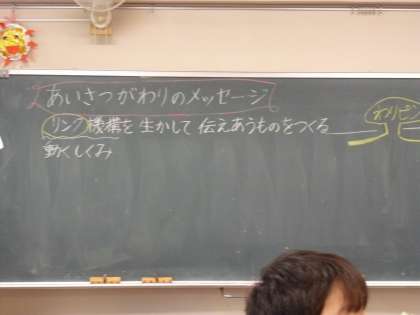 あいさつがわりのメッセージ
リンク機構を生かして伝えあうものをつくる
動くしくみ